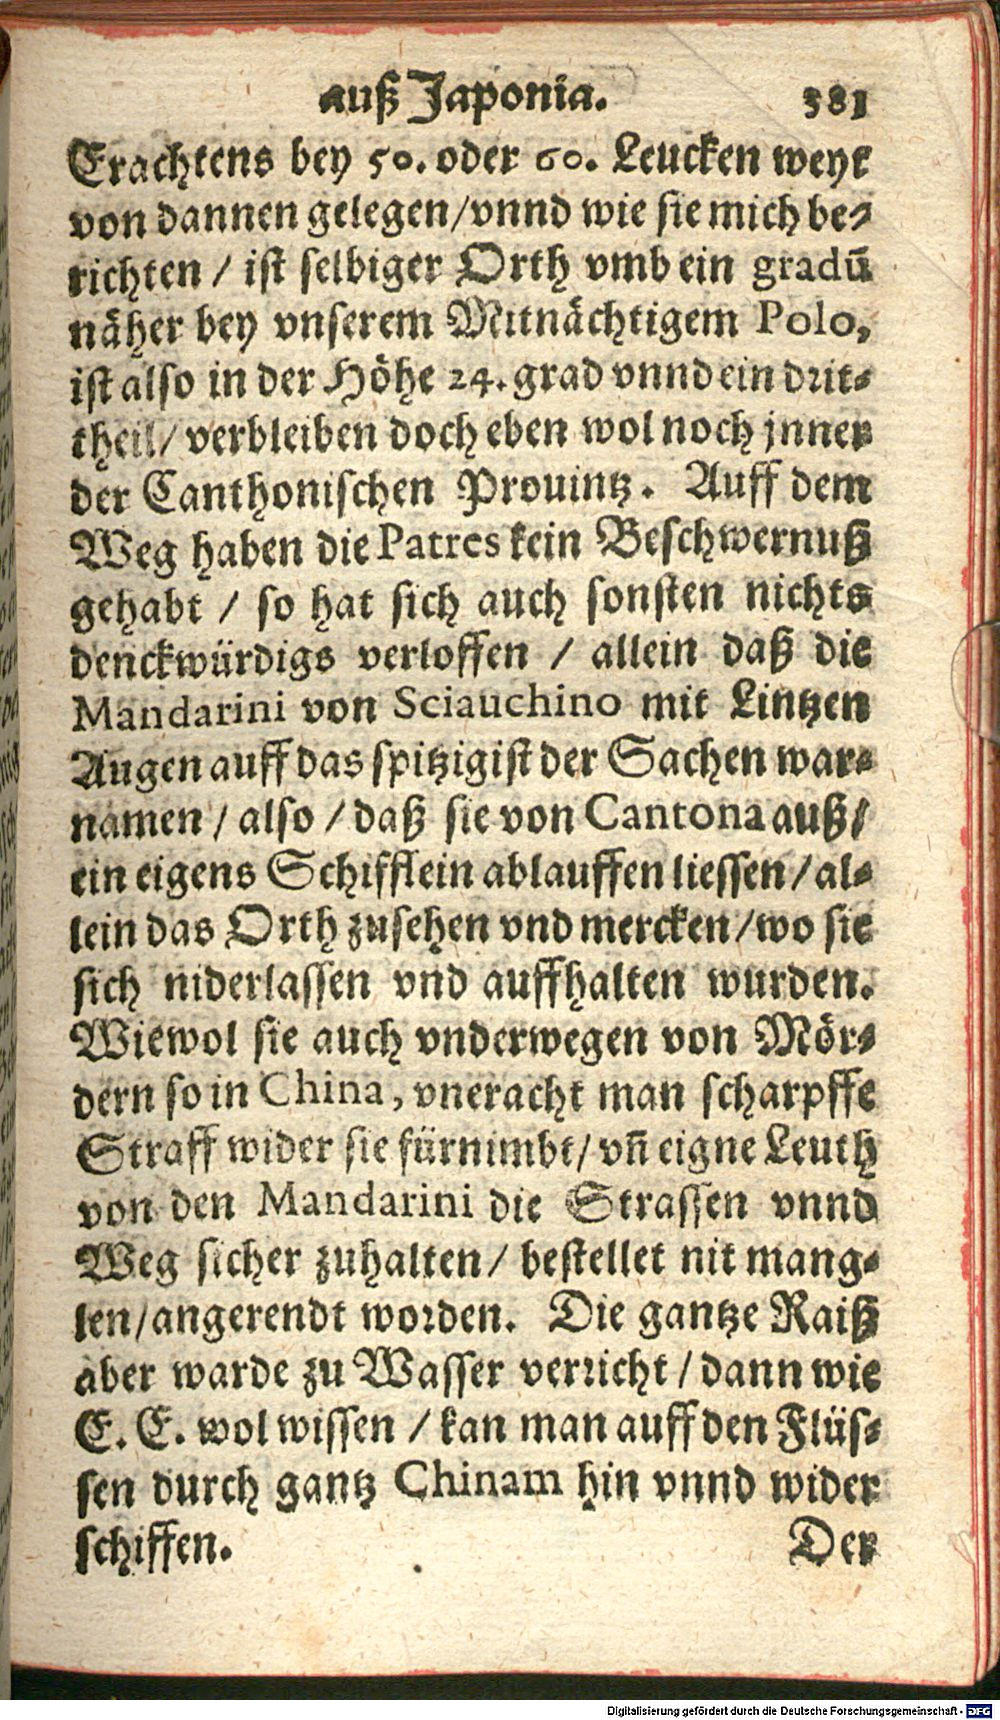 auß Japonia. 381
Erachtens bey 50. oder 60. Leucken weyt
von dannen gelegen/vnnd wie sie mich be⸗
richten / ist selbiger Orth vmb ein gradū
näher bey vnserem Mitnächtigem Polo,
ist also in der Höhe 24. grad vnnd ein drit⸗
theil/ verbleiben doch eben wol noch jnner
der Canthonischen Prouintz. Auff dem
Weg haben die Patres kein Beschwernuß
gehabt / so hat sich auch sonsten nichts
denckwürdigs verloffen / allein daß die
Mandarini von Sciauchino mit Lintzen
Augen auff das spitzigist der Sachen war⸗
namen / also / daß sie von Cantona auß/
ein eigens Schifflein ablauffen liessen / al⸗
lein das Orth zusehen vnd mercken/wo sie
sich niderlassen vnd auffhalten wurden.
Wiewol sie auch vnderwegen von Mör⸗
dern so in China, vneracht man scharpffe
Straff wider sie fürnimbt/ vñ eigne Leuth
von den Mandarini die Strassen vnnd
Weg sicher zuhalten/ bestellet nit mang⸗
len/angerendt worden. Die gantze Raiß
aber warde zu Wasser verricht / dann wie
E. E. wol wissen / kan man auff den Flüs⸗
sen durch gantz Chinam hin vnnd wider
schiffen. Der
Digitalisierung gefördert durch die Deutsche Forschungsgemeinschaft - DFG